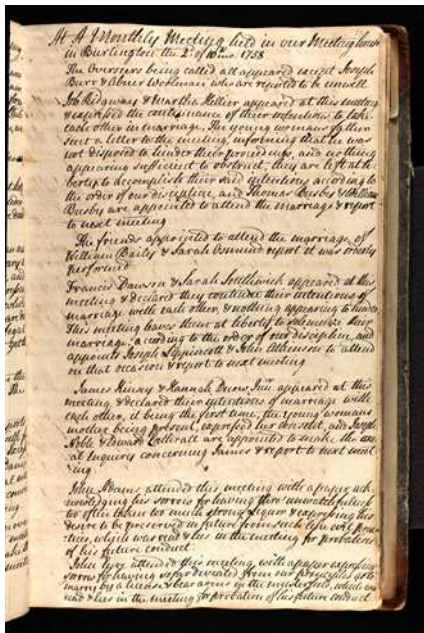 At A Monthly Meeting held in our Meeting house
in Burlington the 2d. of 10th mo. 1758
The Overseers being called all appeared except Joseph
Burr & Abner Woolman who are reported to be unwell
Job Ridgway & Martha Hellier appeared at this meeting
& expressed the continuance of their intentions to take
each other in marriage. The young womans father
sent a letter to the meeting, informing that he was
not disposed to hinder their proceedings, and nothing
appearing sufficient to obstruct, they are left at li-
berty to accomplish their said intentions according to
the order of our discipline, and Thomas Busby & William
Busby are appointed to attend the marriage & report
to next meeting
The friends appointed to attend the marriage of
William Bailey & Sarah Osmund report it was orderly
performed
Francis Dawson & Sarah Southwick appeared at this
meeting & declared they continue their intentions of
marriage with each other, & nothing appearing to hinder
This meeting leaves them at liberty to solemnize their
marriage, according to the order of our discipline, and
appoints Joseph Lippincott & John Atkinson to attend
on that occasion & report to next meeting
James Kinsey & Hannah Decow Junr. appeared at this
meeting & declared their intentions of marriage with
each other, it being the first time, the young womans
mother being present, expressed her consent, and Joseph
Noble & Edward Cathrall are appointed to make the usu-
al Inquiry concerning James & report to next meet
ing
John Adams attended this meeting with a paper ack-
nowledging his sorrow for having thro' unwatchfulness
too often taken too much strong liquor & expressing his
desire to be preserved in future from such like evil prac-
tices, which was read & lies in the meeting for probation
of his future conduct
John attended this meeting with a paper expressing
sorrow for having so far deviated from our principles as to
marry by a licence & bear arms in the muster field, which was
read & lies in the meeting for probation of his future conduct